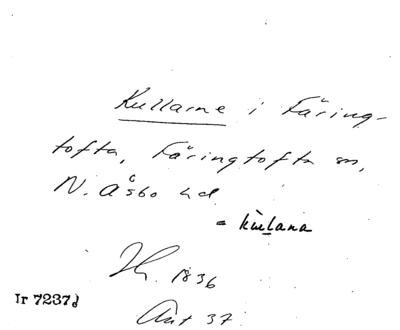 Kullarne i Färing-
tofta, Färingtofta sn,
N. Åsbo hd
= kulana
1836
Ir 7237d
Ant 37